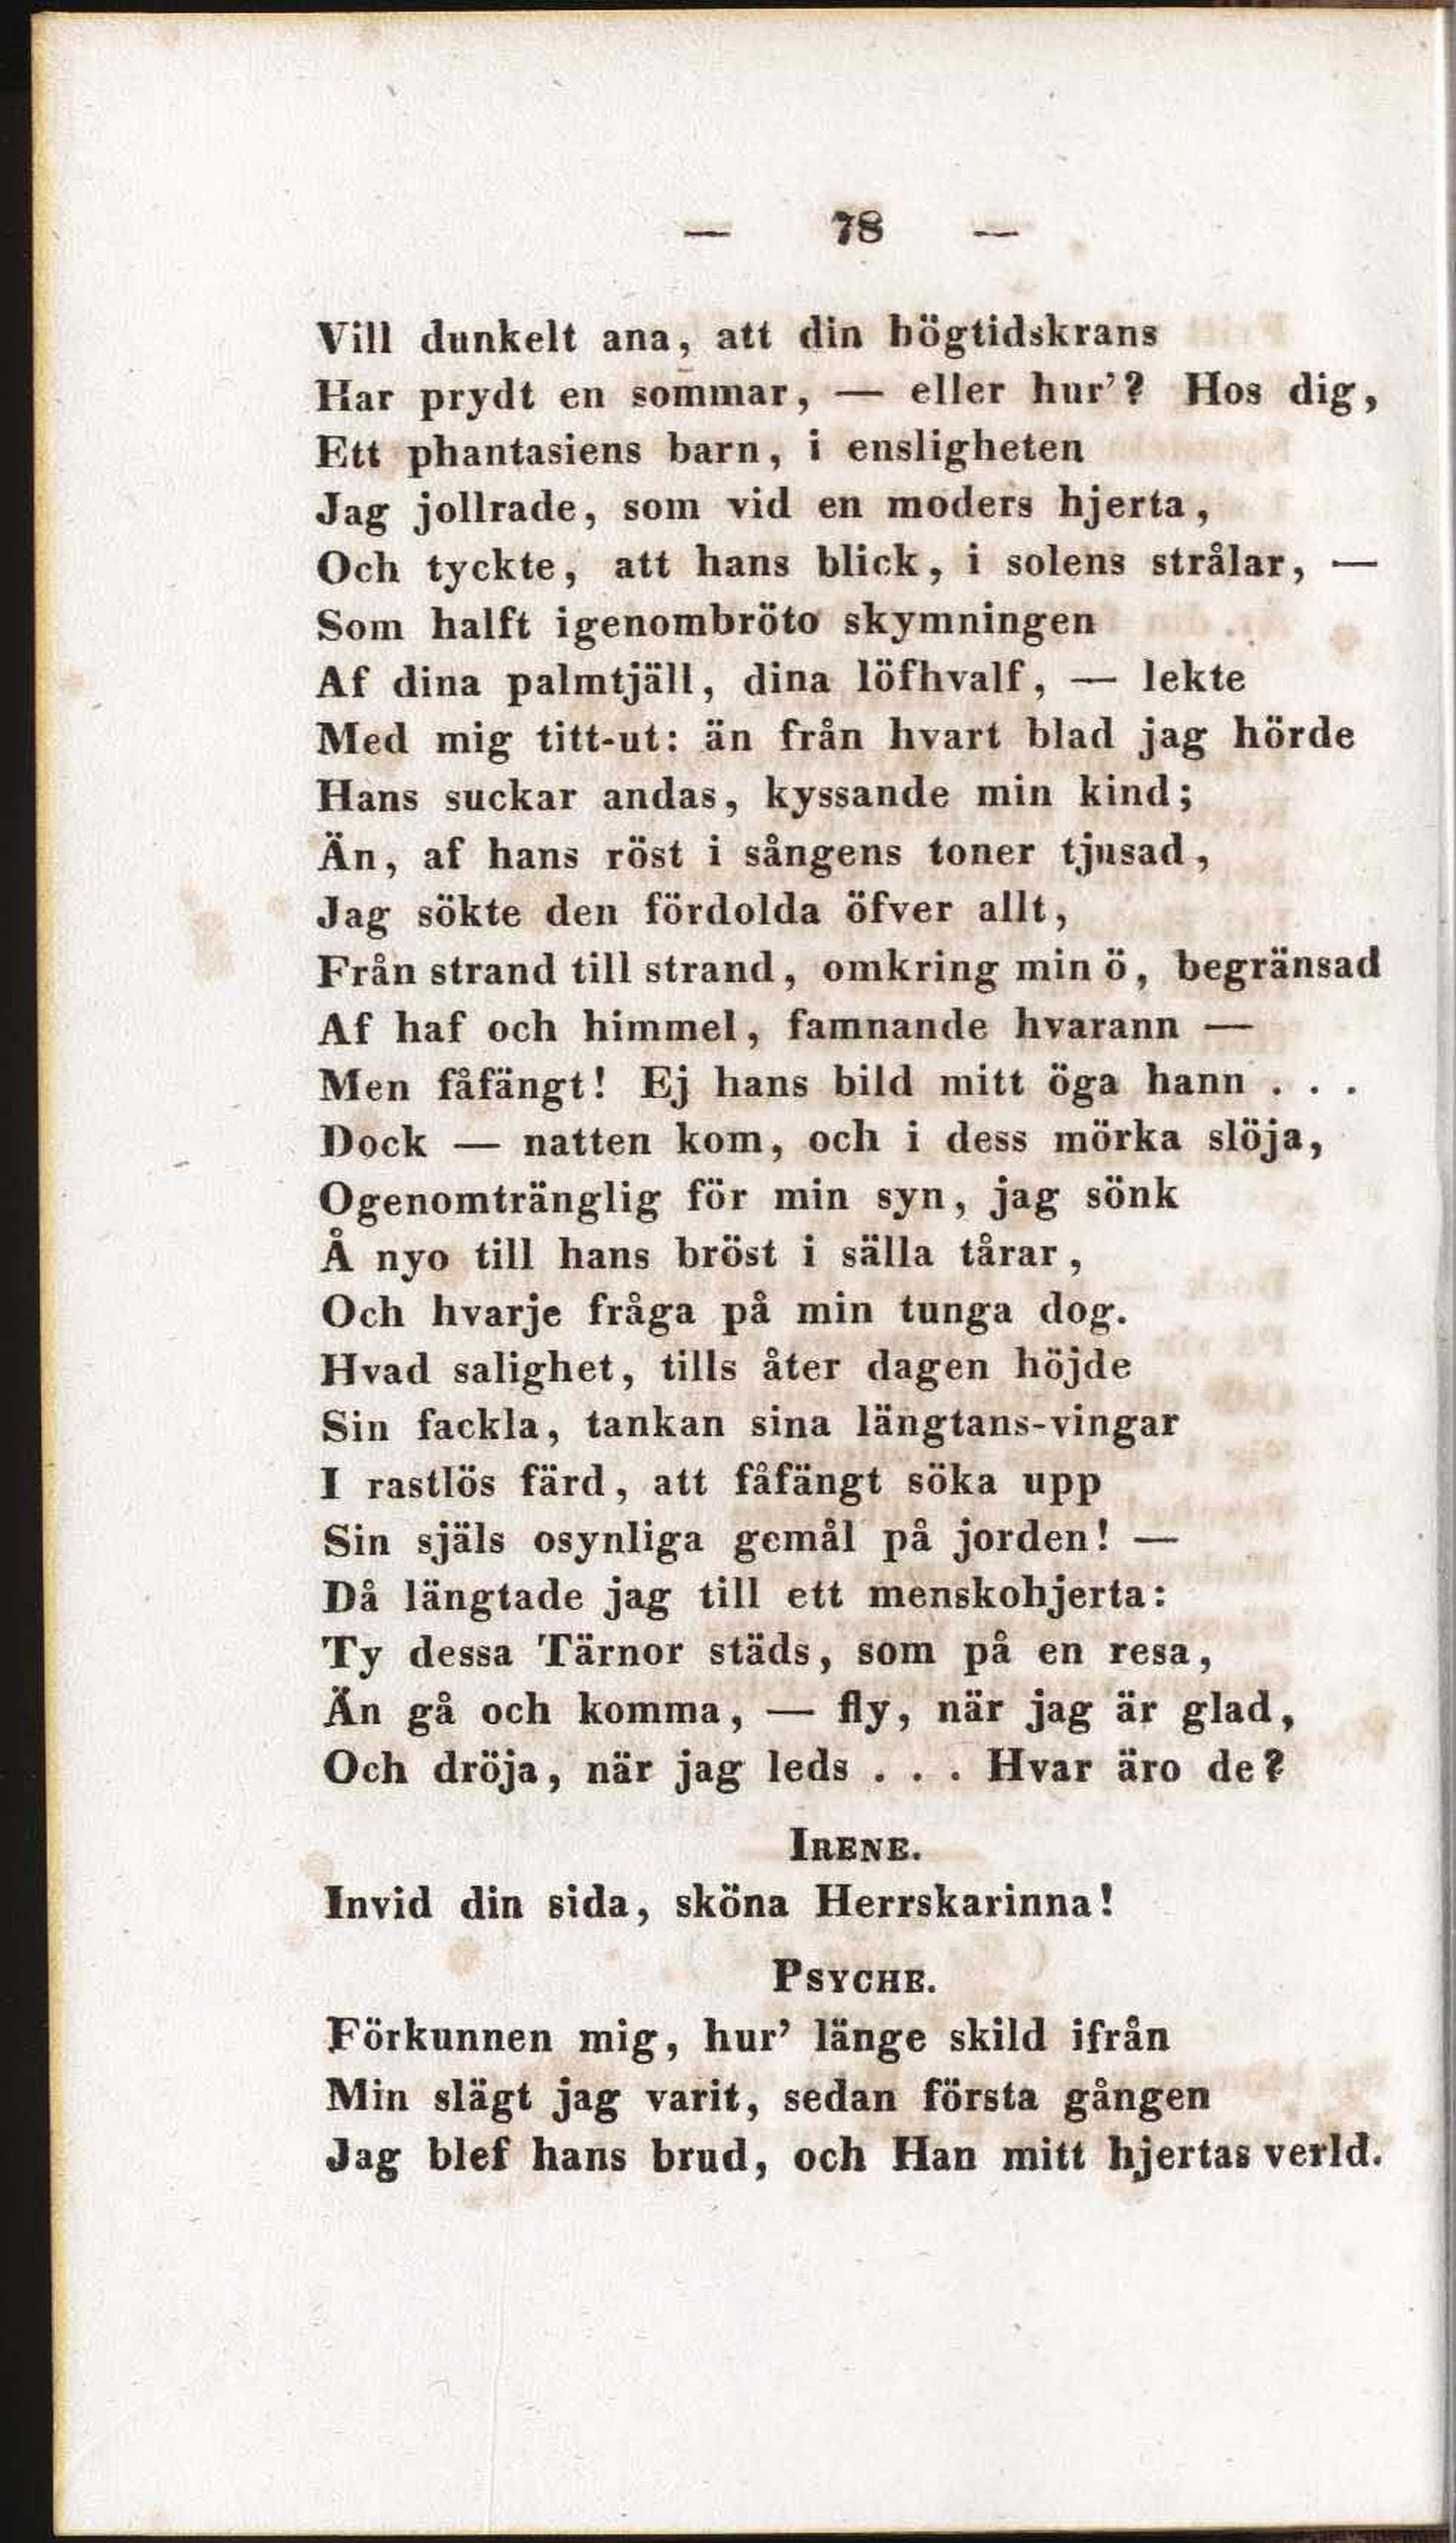 — 78 —
Vill dunkelt ana, att din högtidskrans
Har prydt en sommar, — eller hur'? Hos dig,
Ett phantasiens barn, i ensligheten
Jag jollrade, som vid en moders hjerta,
Och tyckte, att hans blick, i solens strålar, —
Som halft igenombröto skymningen
Af dina palmtjäll, dina löfhvalf, — lekte
Med mig titt-ut: än från hvart blad jag hörde
Hans suckar andas, kyssande min kind;
Än, af hans röst i sångens toner tjusad,
Jag sökte den fördolda öfver allt,
Från strand till strand, omkring min ö, begränsad
Af haf och himmel, famnande hvarann —
Men fåfängt! Ej hans bild mitt öga hann . . .
Dock — natten kom, och i dess mörka slöja,
Ogenomtränglig för min syn, jag sönk
Å nyo till hans bröst i sälla tårar,
Och hvarje fråga på min tunga dog.
Hvad salighet, tills åter dagen höjde
Sin fackla, tankan sina längtans-vingar
I rastlös färd, att fåfängt söka upp
Sin själs osynliga gemål på jorden! —
Då längtade jag till ett menskohjerta:
Ty dessa Tärnor städs, som på en resa,
Än gå och komma, — fly, när jag är glad,
Och dröja, när jag leds . . . Hvar äro de?
IRENE.
Invid din sida, sköna Herrskarinna!
PSYCHE.
Förkunnen mig, hur' länge skild ifrån
Min slägt jag varit, sedan första gången
Jag blef hans brud, och Han mitt hjertas verld.